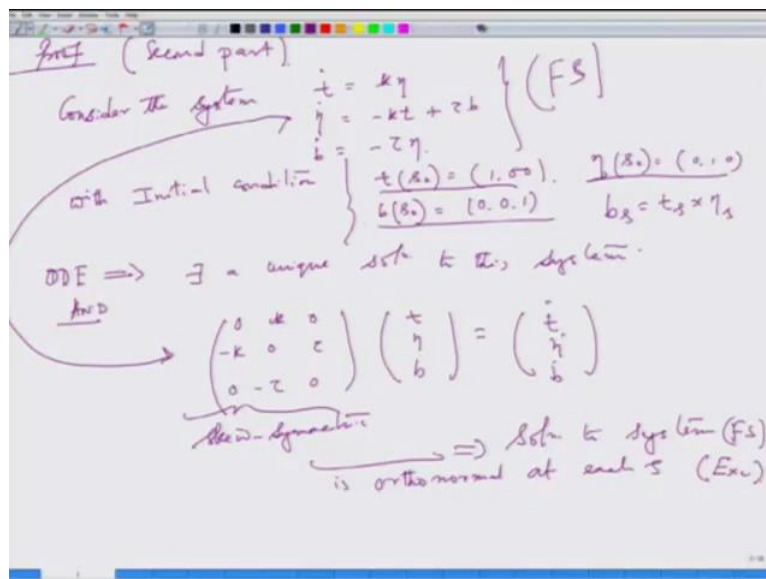 Proof (Second part)
Consider the system
ṫ = kη
η̇ = -kt + τb
ḃ = -τη.
} (FS)
with Initial condition
t(s₀) = (1,0,0). η(s₀) = (0,1,0)
b(s₀) = (0,0,1) bₛ = tₛ × ηₛ
ODE ⟹ ∃ a unique soln to this system.
AND
( 0 k 0 ) ( t ) = ( ṫ )
( -k 0 τ ) ( η ) ( η̇ )
( 0 -τ 0 ) ( b ) ( ḃ )
Skew-symmetric
⟹ Soln to system (FS)
is orthonormal at each s (Exc)